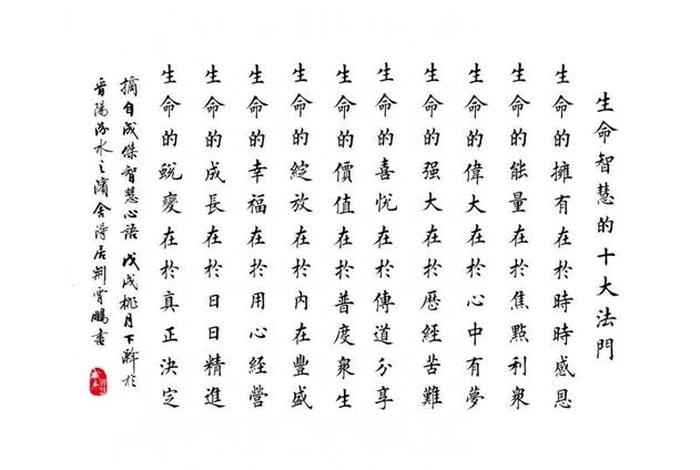 生命智慧的十大法門
生命的擁有在於時時感恩
生命的能量在於焦點利衆
生命的偉大在於心中有夢
生命的强大在於歷經苦難
生命的喜悅在於傳道分享
生命的價值在於普度衆生
生命的綻放在於內在豐盛
生命的幸福在於用心經營
生命的成長在於日日精進
生命的蛻變在於真正決定
摘自成傑智慧心語 戊戌桃月下澣於
晋陽汾水之濱舍得居荆霄鵬書